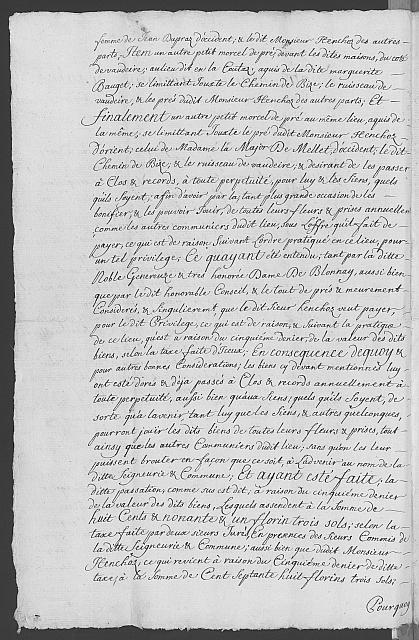 femme de Jean Dupraz d'occident; & le dit Monsieur Henchoz des autres
parts, Item un autre petit morcel de pré, devant les dites maisons, du coté
de vaudeire; au lieu dit en la Coutaz, aquis de la dite marguerite
Bauget; se limittant Jouxte le Chemin de Bize, le ruisseau de
vaudeire, & les prés dudit Monsieur Henchoz des autres parts; Et
finalement un autre petit morcel de pré au même lieu, aquis de
la même, se limittant Jouxte le pré dudit Monsieur Henchoz
d'orient; celuy de Madame la Major De Mellet, d'occident; le dit
Chemin de Bize; & le ruisseau de vaudeire, & desirant de les passer
à Clos & records, à toute perpetuité, pour luy & les Siens, quels
qu'ils soyent; afin d'avoir par là, tant plus grande occasion de les
bonifier, & les pouvoir Jouir, de toutes leurs fleurs & prises annuellement
comme les autres communiers dudit lieu, sous L'offre qu'il fait de
payer, ce qui est de raison, suivant L'ordre pratiqué en ce lieu, pour
un tel privilege; Ce quayant été entendu; tant par la ditte
Noble Genereuze & tres honorée Dame De Blonnay, aussi bien
que par le dit honorable Conseil, & le tout de près & meurement
Considerés, & singulierement que le dit Sieur henchoz veut payer,
pour le dit Privilege, ce qui est de raison, & suivant la pratique
de ce lieu, qu'est à raison du cinquième denier, de la valeur des dits
biens, selon la taxe faite d'Iceux; En consequence dequoy &
pour autres bonnes Considerations; les biens cy devant mentionnés luy
ont esté dorés & déja passés à Clos & records annuellement à
toute perpetuité, aussi bien qu'aux siens; quels qu'ils soyent, de
sorte qu'a lavenir tant luy que les siens, & autres quelconques,
pourront jouir les dits biens de toutes leurs fleurs & prises, tout
ainsy que les autres Communiers dudit lieu; sans qu'on les leur
puissent brouter en façon que ce soit, à L'advenir au nom de la
ditte Seigneurie & Commune; Et ayant esté faite, la
ditte passation, comme sus est dit, à raison du cinquième denier
de la valeur des dits biens, Lesquels assendent à la somme de
huit Cents & nonante & un florin trois sols; selon la
taxe faite par deux sieurs Jurés, en presences des sieurs Commis de
la ditte Seigneurie & Commune; aussi bien que dudit Monsieur
Henchoz, ce qui revient à raison du Cinquième denier de ditte
taxe, à la somme de Cent Septante huit florins trois sols;
Pourquoy